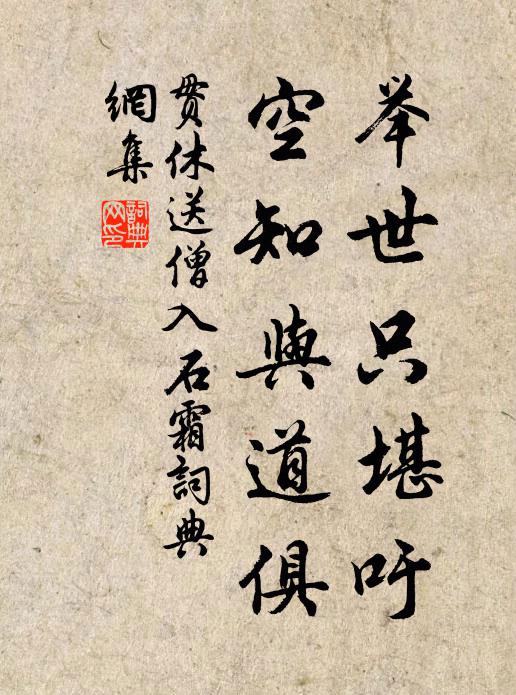 举世只堪吁
空知與道俱
贯休送僧入石霜詞典
網集
詞典
网印